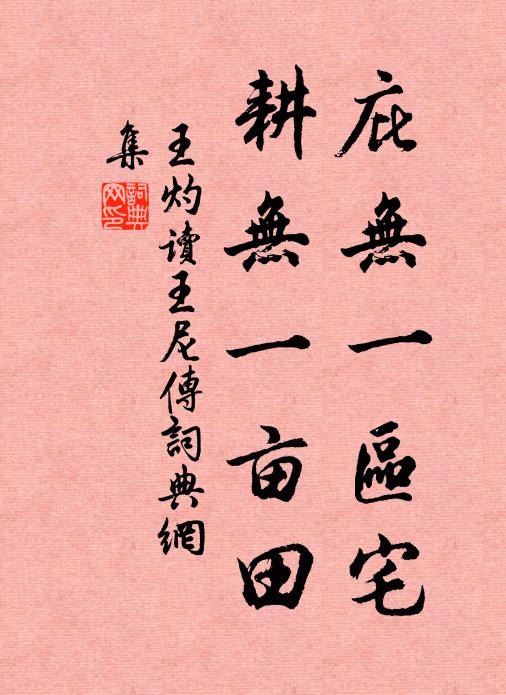 庇無一區宅
耕無一亩田
王灼讀王尼傳詞典網
集
詞典
网印